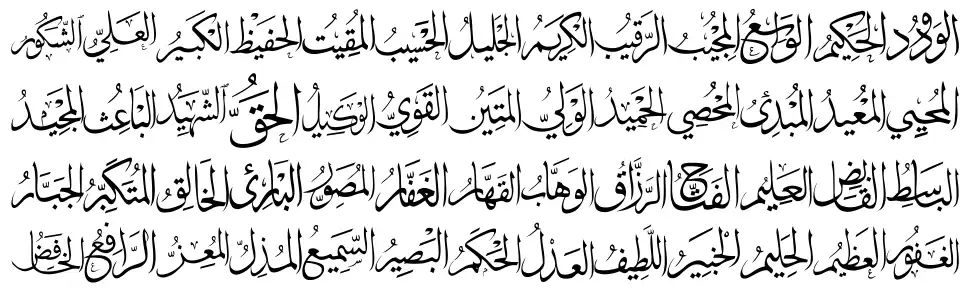 الودود الحكيم الواسع المجيب الرقيب الكريم الجليل الحسيب المقيت الحفيظ الكبير العلي الشكور
المحيي المعيد المبدئ المحصي الحميد الولي المتين القوي الوكيل الحق الشهيد الباعث المجيد
الباسط القابض العليم الفتاح الرزاق الوهاب القهار الغفار المصور البارئ الخالق المتكبر الجبار
الغفور العظيم الحليم الخبير اللطيف العدل الحكم البصير السميع المذل المعز الرافع الخافض